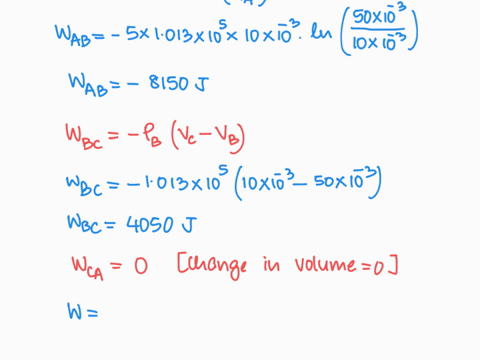 W_AB = - 5×1.013×10^5 × 10×10^-3 . ln (50×10^-3 / 10×10^-3)
W_AB = - 8150 J
W_BC = - P_B (V_C - V_B)
W_BC = - 1.013×10^5 (10×10^-3 - 50×10^-3)
W_BC = 4050 J
W_CA = 0 [change in volume = 0]
W =